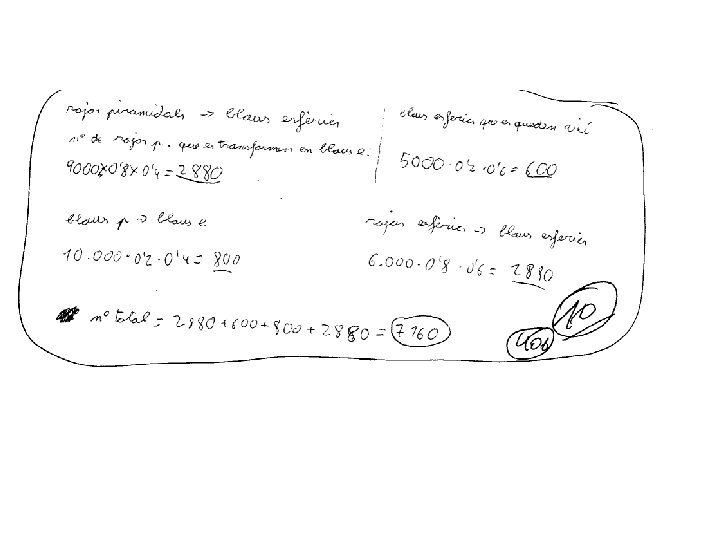 rojos piramidals → blaus esfèrics
nº de rojos p. que es transformen en blaus e:
9000×0'8×0'4=2880
blaus esfèrics que es queden
5000·0'2·0'6=600
blaus p → blaus e
10.000·0'2·0'4=800
rojos esfèrics → blaus esfèrics
6.000·0'8·0'6=2880
nº total = 2880+600+800+2880=7160
10